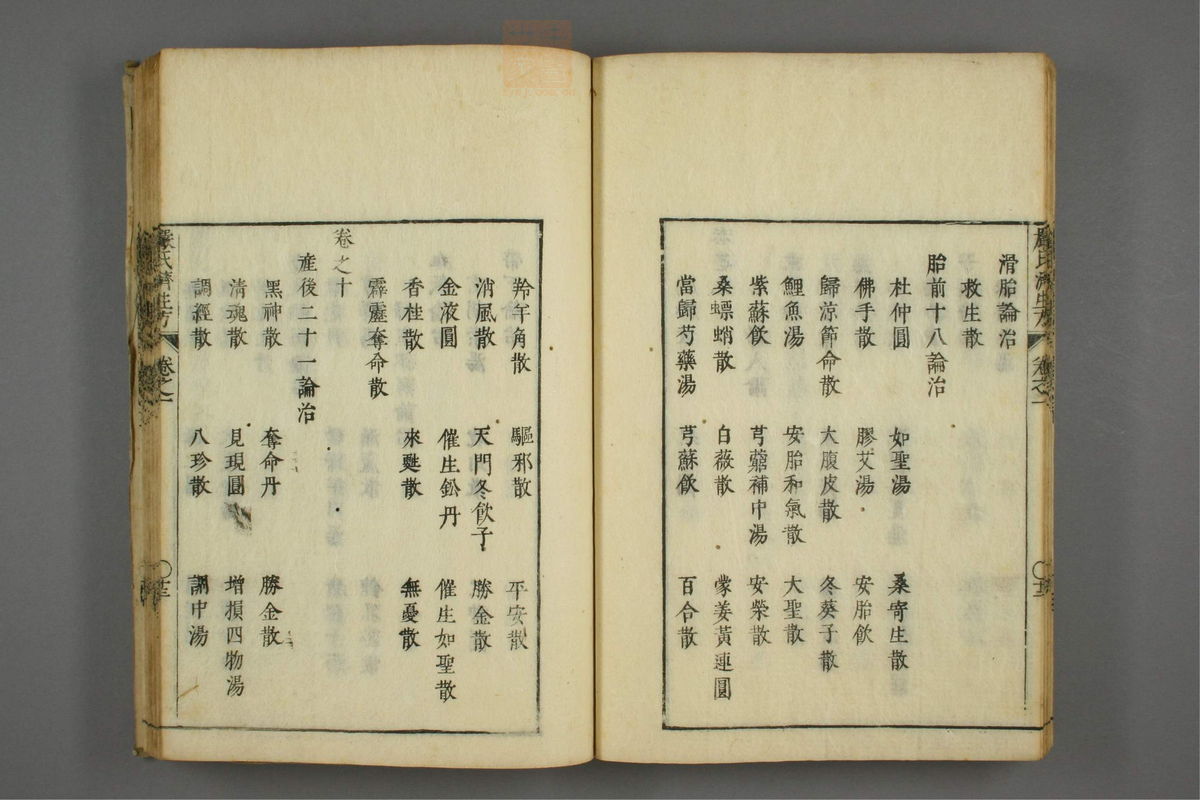 滑胎論治
救生散
胎前十八論治
杜仲圓 如聖湯 桑寄生散
佛手散 膠艾湯 安胎飲
歸涼節命散 大腹皮散 冬葵子散
鯉魚湯 安胎和氣散 大聖散
紫蘇飲 芎藭補中湯 安榮散
桑螵蛸散 白薇散 蒙姜黃連圓
當歸芍藥湯 芎蘇飲 百合散
羚羊角散 驅邪散 平安散
消風散 天門冬飲子 勝金散
金液圓 催生鈆丹 催生如聖散
香桂散 來甦散 無憂散
霹靂奪命散
卷之十
產後二十一論治
黑神散 奪命丹 勝金散
清魂散 見現圓 增損四物湯
調經散 八珍散 調中湯
嚴氏濟生方 卷之一